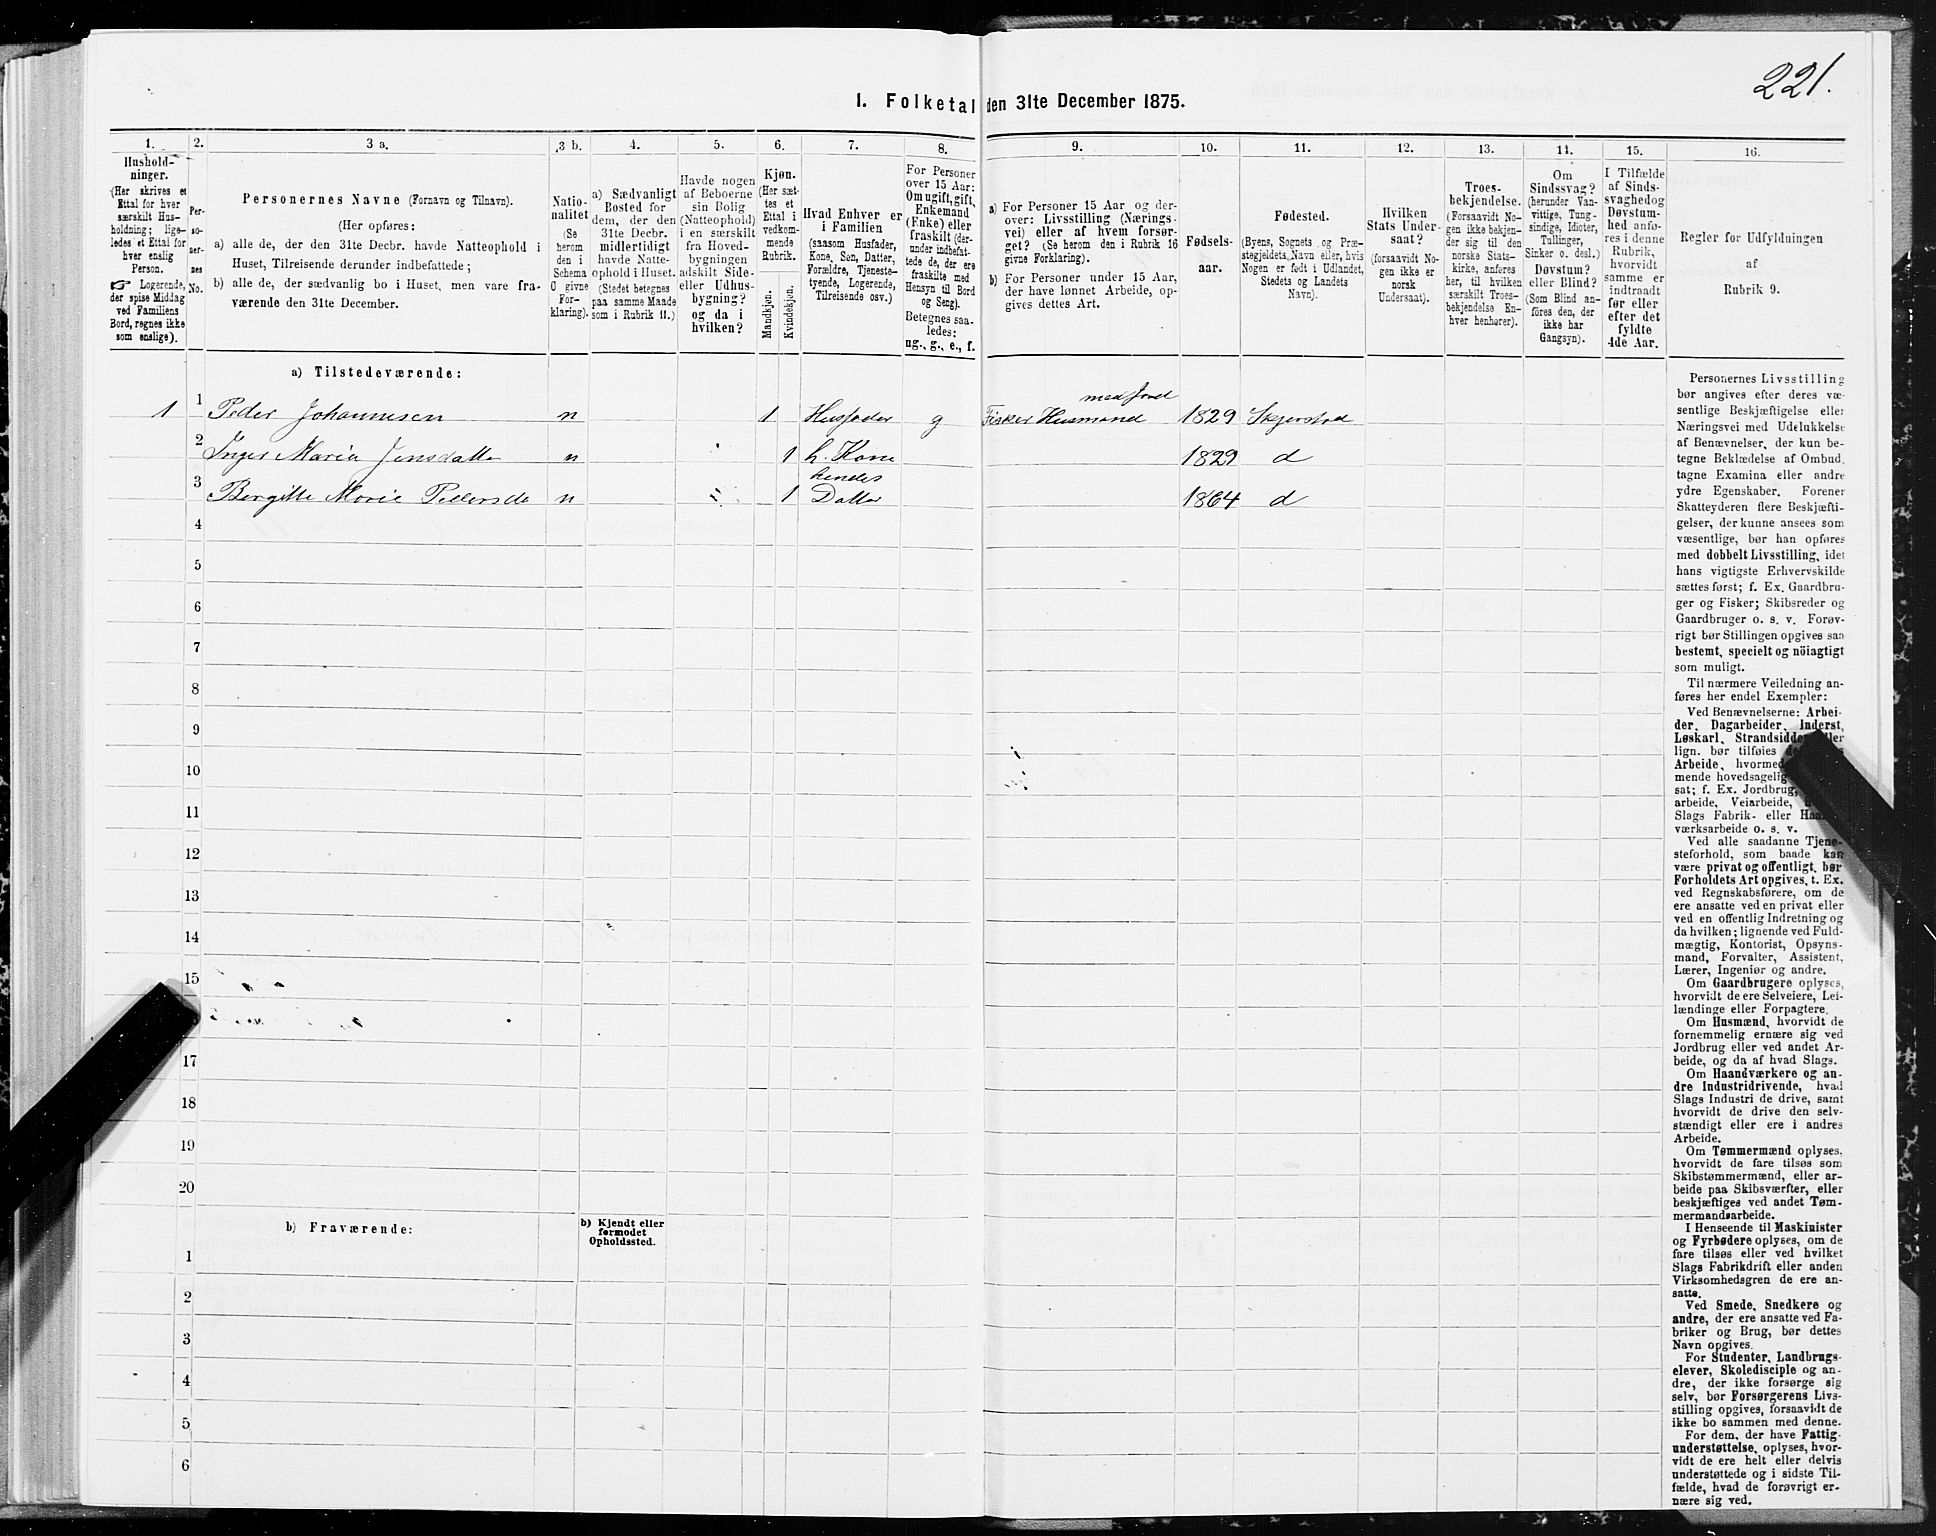 221.
I. Folketal den 31te December 1875.
1. 2. 3 a. 3 b. 4. 5. 6. 7. 8. 9. 10. 11. 12. 13. 14. 15. 16.
Hushold-
ninger.
(Her skrives et
Ettal for hver
særskilt Hus-
holdning; lige-
ledes et Ettal for
hver enslig
Person.
☞ Logerende,
der spise Middag
ved Familiens
Bord, regnes ikke
som enslige).
Per-
so-
ner-
nes
No.
Personernes Navne (Fornavn og Tilnavn).
(Her opføres:
a) alle de, der den 31te Decbr. havde Natteophold i
Huset, Tilreisende derunder indbefattede;
b) alle de, der sædvanlig bo i Huset, men vare fra-
værende den 31te December.
Natio-
nalitet
(Se
herom
den i
Schema
C givne
For-
klaring).
a) Sædvanligt
Bosted for
dem, der den
31te Decbr.
midlertidigt
havde Natte-
ophold i Huset.
(Stedet betegnes
paa samme Maade
som i Rubrik 11.)
Havde nogen
af Beboerne
sin Bolig
(Natteophold)
i en særskilt
fra Hoved-
bygningen
adskilt Side-
eller Udhus-
bygning?
og da i
hvilken?
Kjøn.
(Her sæt-
tes et
Ettal i
vedkom-
mende
Rubrik.
Mandkjøn.
Kvindekjøn.
Hvad Enhver er
i Familien
(saasom Husfader,
Kone, Søn, Datter,
Forældre, Tjeneste-
tyende, Logerende,
Tilreisende osv.)
For Personer
over 15 Aar:
Om ugift, gift,
Enkemand
(Enke) eller
fraskilt (der-
under indbefat-
tede de, der ere
fraskilte med
Hensyn til Bord
og Seng).
Betegnes saa-
ledes:
ug., g., e., f.
a) For Personer 15 Aar og der-
over: Livsstilling (Nærings-
vei) eller af hvem forsør-
get? (Se herom den i Rubrik 16
givne Forklaring).
b) For Personer under 15 Aar,
der have lønnet Arbeide, op-
gives dettes Art.
Fødsels-
aar.
Fødested.
(Byens, Sognets og Præ-
stegjeldets Navn eller, hvis
Nogen er født i Udlandet,
Stedets og Landets
Navn).
Hvilken
Stats Under-
saat?
(forsaavidt No-
gen ikke er
norsk
Undersaat).
Troes-
bekjendelse.
(Forsaavidt No-
gen ikke bekjen-
der sig til den
norske Stats-
kirke, anføres
her, til hvilken
særskilt Troes-
bekjendelse En-
hver henhører).
Om
Sindssvag?
(herunder Van-
vittige, Tung-
sindige, Idioter,
Tullinger,
Sinker o. desl.)
Døvstum?
eller Blind?
(Som Blind an-
føres den, der
ikke har
Gangsyn).
I Tilfælde
af Sinds-
svaghed og
Døvstum-
hed anfø-
res i denne
Rubrik,
hvorvidt
samme er
indtraadt
før eller
efter det
fyldte
4de Aar.
Regler for Udfyldningen
af
Rubrik 9.
a) Tilstedeværende:
med Jord
1 1 Peder Johannesen n 1 Husfader g Fisker Husmand 1829 Skjerstad
2 Inger Maria Jensdatter n 1 h. Kone 1829 d
hendes
3 Bergitte Marie Pedersd n 1 Datter 1864 d
4
5
6
7
8
9
10
11
12
13
14
15
17
18
19
20
b) Fraværende:
b) Kjendt eller
formodet
Opholdssted.
1
2
3
4
5
6
Personernes Livsstilling
bør angives efter deres væ-
sentlige Beskjæftigelse eller
Næringsvei med Udelukkelse
af Benævnelser, der kun be-
tegne Beklædelse af Ombud,
tagne Examina eller andre
ydre Egenskaber. Forener
Skatteyderen flere Beskjæfti-
gelser, der kunne ansees som
væsentlige, bør han opføres
med dobbelt Livsstilling, idet
hans vigtigste Erhvervskilde
sættes først; f. Ex. Gaardbru-
ger og Fisker; Skibsreder og
Gaardbruger o. s. v. Forøv-
rigt bør Stillingen opgives saa
bestemt, specielt og nöiagtigt
som muligt.
Til nærmere Veiledning an-
føres her endel Exempler:
Ved Benævnelserne: Arbei-
der, Dagarbeider, Inderst,
Løskarl, Strandsidder eller
lign. bør tilføies
Arbeide, hvormed
mende hovedsagelig
sat; f. Ex. Jordbrug,
arbeide, Veiarbeide,
Slags Fabrik- eller
værksarbeide o. s. v.
Ved alle saadanne Tjene-
steforhold, som baade kan
være privat og offentligt, bør
Forholdets Art opgives, t. Ex.
ved Regnskabsførere, om de
ere ansatte ved en privat eller
ved en offentlig Indretning og
da hvilken; lignende ved Fuld-
mægtig, Kontorist, Opsyns-
mand, Forvalter, Assistent,
Lærer, Ingeniør og andre.
Om Gaardbrugere oplyses,
hvorvidt de ere Selveiere, Lei-
lændinge eller Forpagtere.
Om Husmænd, hvorvidt de
fornemmelig ernære sig ved
Jordbrug eller ved andet Ar-
beide, og da af hvad Slags.
Om Haandværkere og an-
dre Industridrivende, hvad
Slags Industri de drive, samt
hvorvidt de drive den selv-
stændigt eller ere i andres
Arbeide.
Om Tømmermænd oplyses,
hvorvidt de fare tilsøs som
Skibstømmermænd, eller ar-
beide paa Skibsværfter, eller
beskjæftiges ved andet Tøm-
mermandsarbeide.
I Henseende til Maskinister
og Fyrbødere oplyses, om de
fare tilsøs eller ved hvilket
Slags Fabrikdrift eller anden
Virksomhedsgren de ere an-
satte.
Ved Smede, Snedkere og
andre, der ere ansatte ved Fa-
briker og Brug, bør dettes
Navn opgives.
For Studenter, Landbrugs-
elever, Skoledisciple og an-
dre, der ikke forsørge sig
selv, bør Forsørgerens Livs-
stilling opgives, forsaavidt de
ikke bo sammen med denne.
For dem, der have Fattig-
understøttelse, oplyses, hvor-
vidt de ere helt eller delvis
understøttede og i sidste Til-
fælde, hvad de forøvrigt er-
nære sig ved.